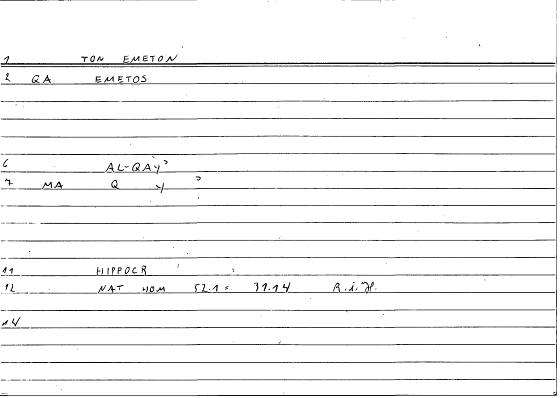 1 TON EMETON
2 QA EMETOS
6 AL-QAY'
7 MA Q Y '
11 HIPPOCR
12 NAT HOM 52.1 = 31.14 R.i.H.
14